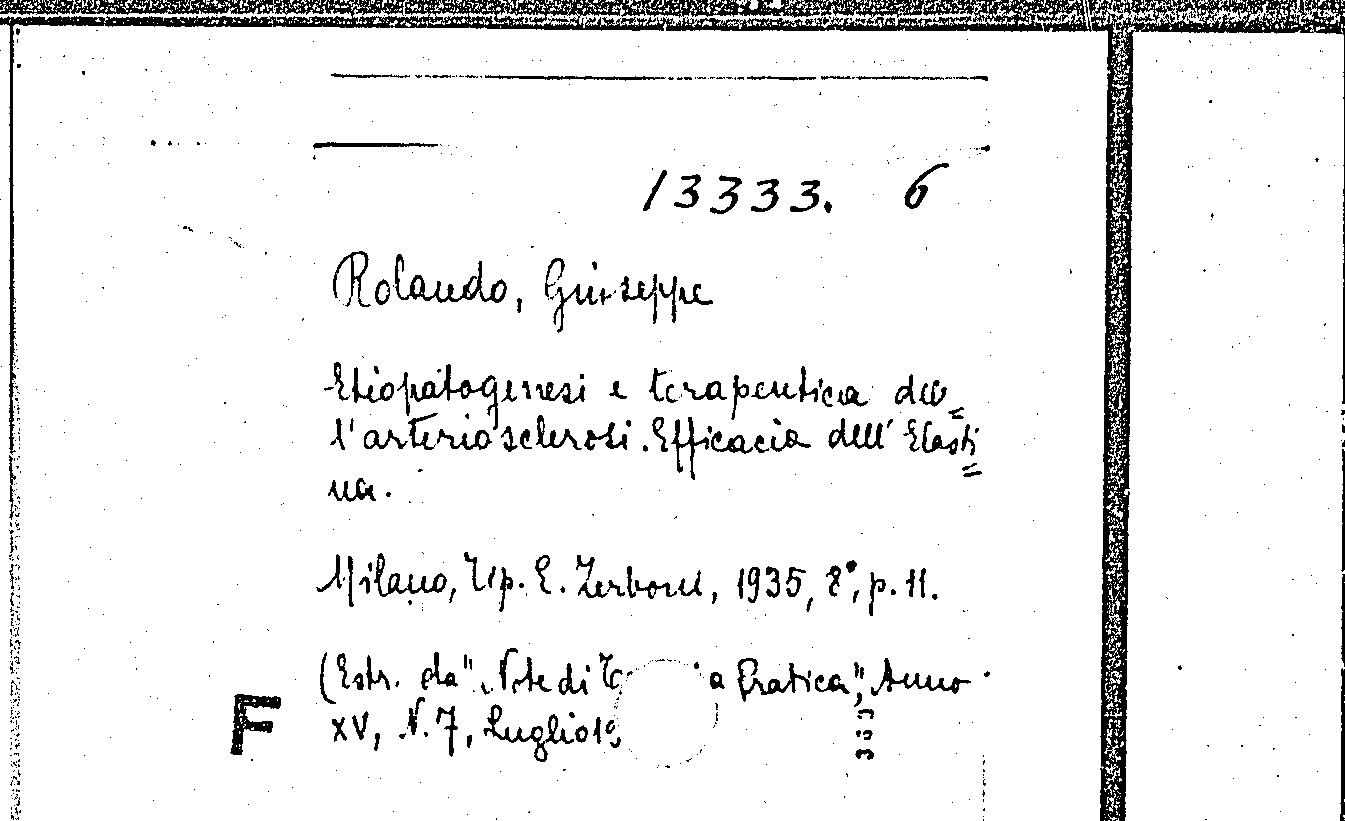 13333. 6
Rolando, Giuseppe
Etiopatogenesi e terapeutica del=
l'arteriosclerosi. Efficacia dell'Elasti
=
na.
Milano, Tip. E. Zerboni, 1935, 8°, p. 11.
(Estr. da "Note di a Pratica", Anno
XV, N. 7, Luglio 19
F